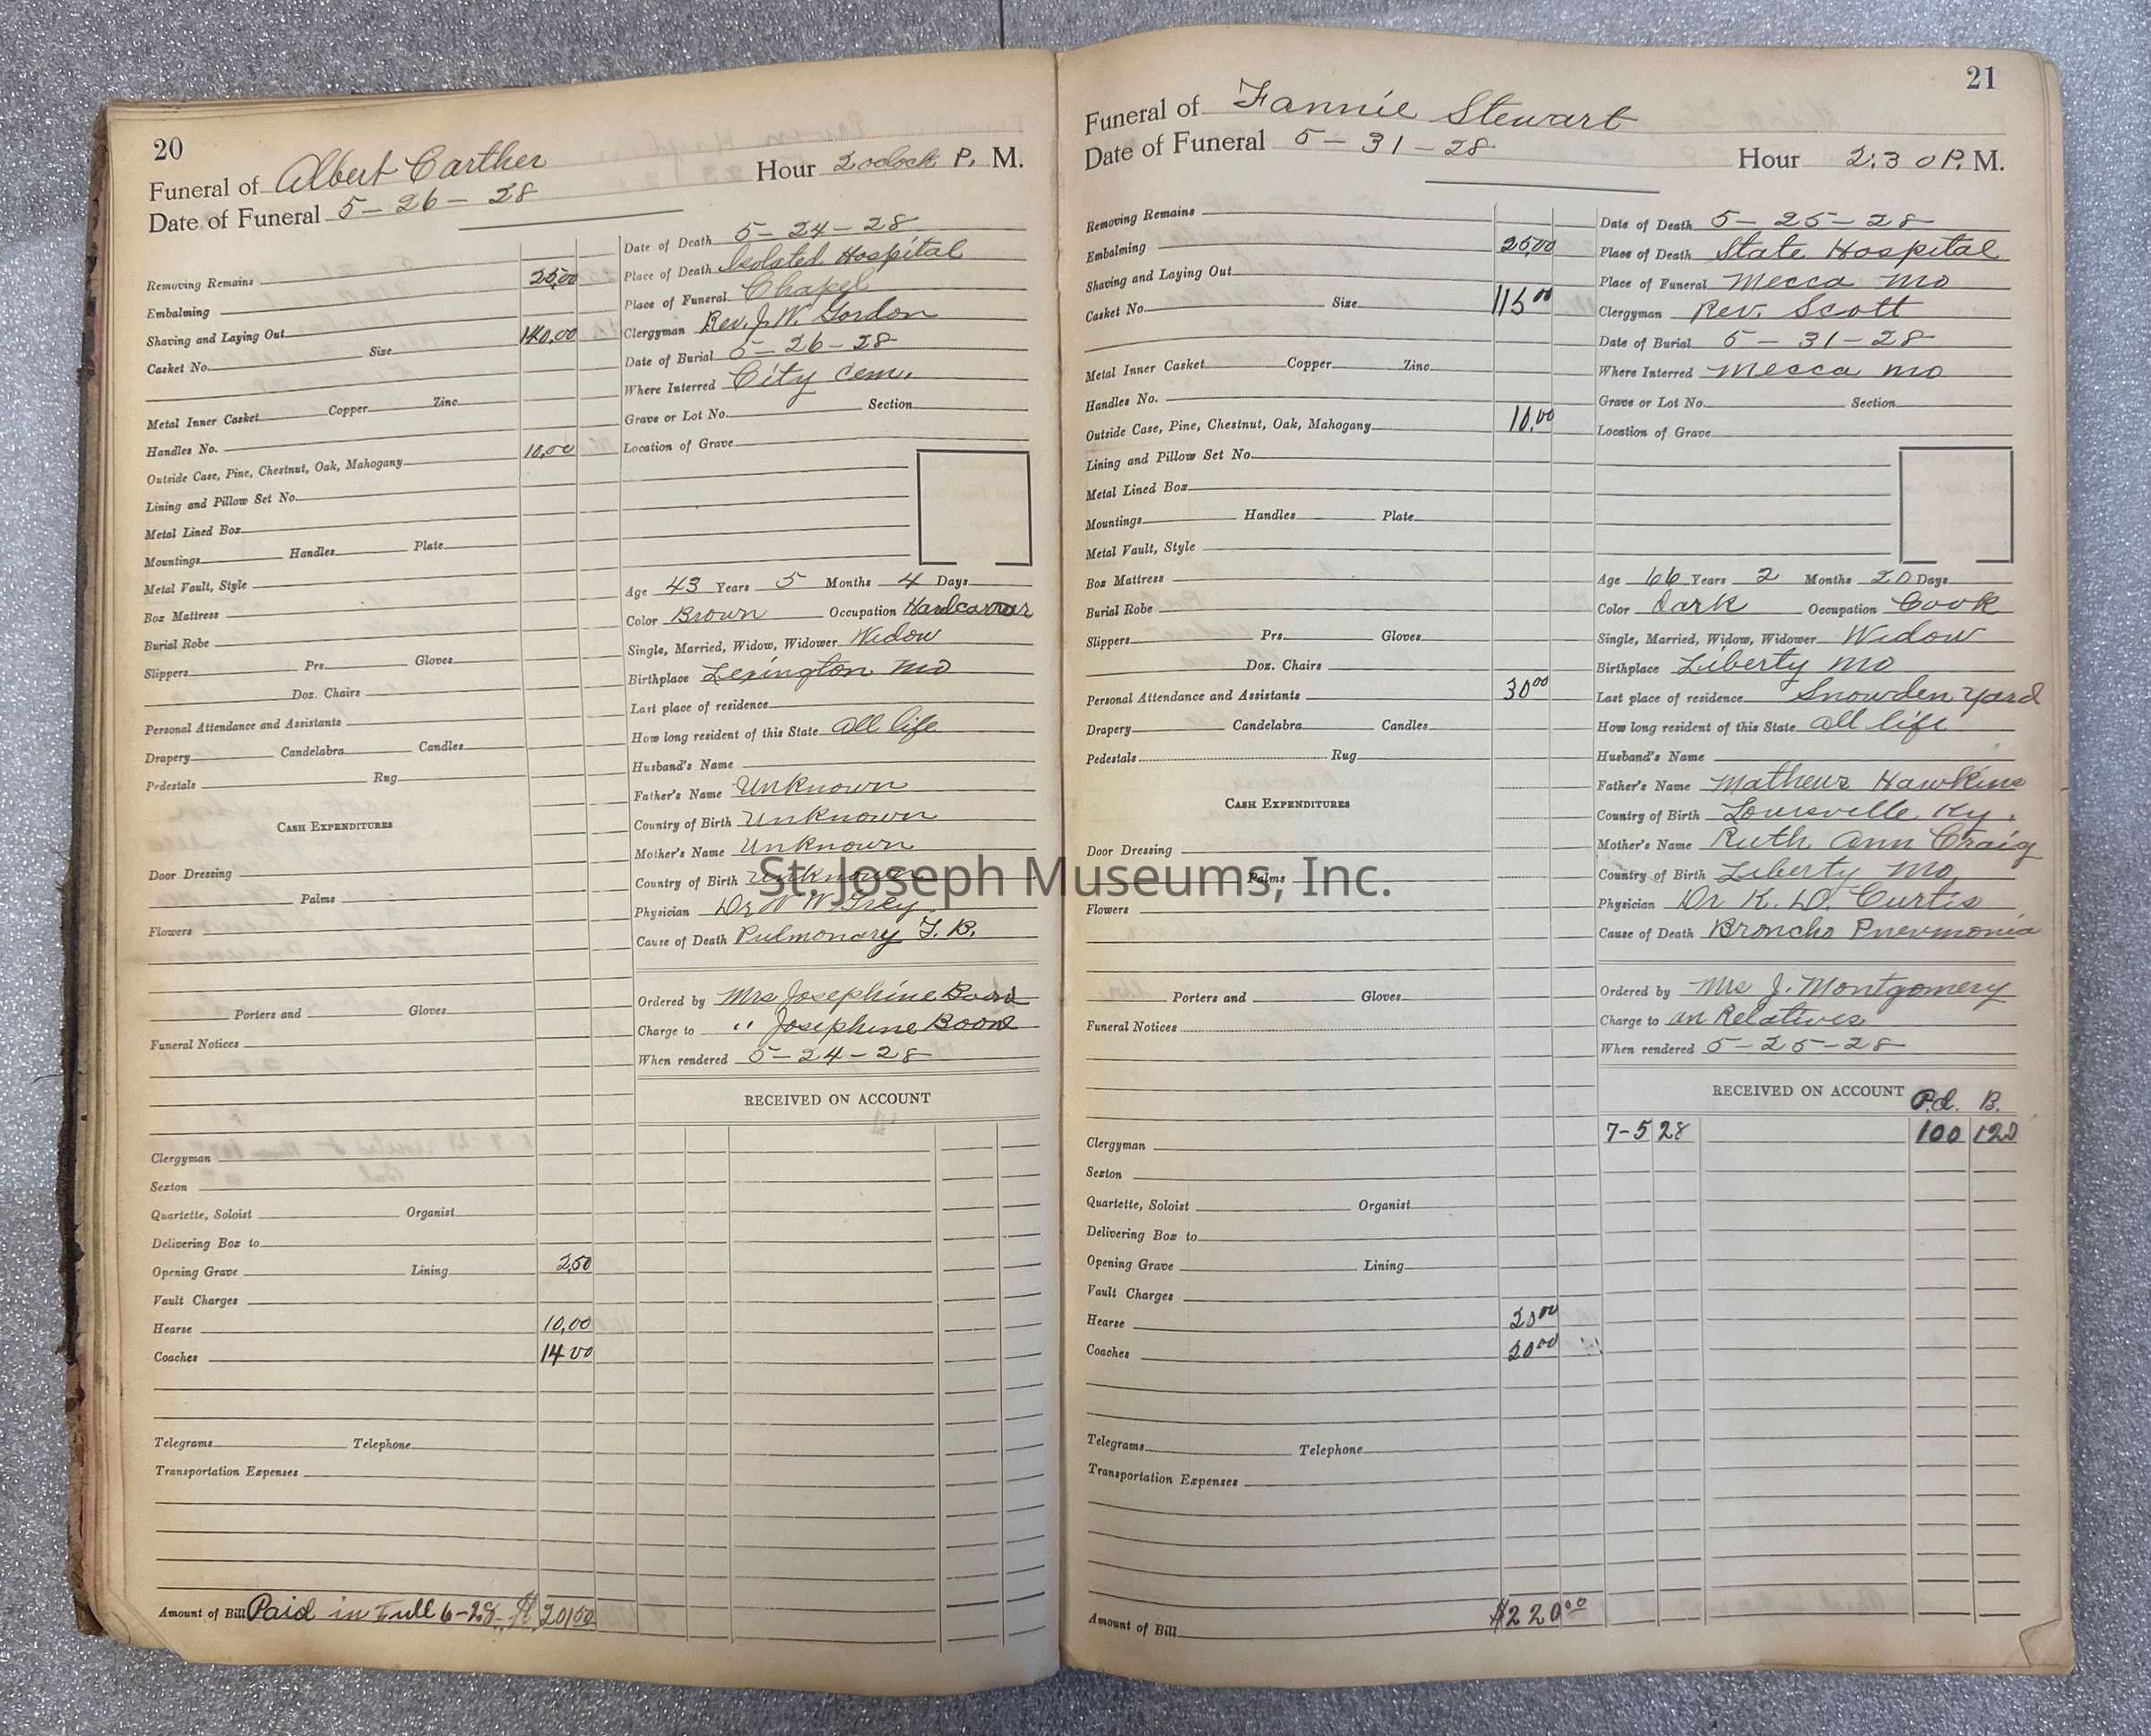 20
Funeral of Albert Carther
Hour 2 oclock P. M.
Date of Funeral 5-26-28
Removing Remains 25,00
Embalming
Shaving and Laying Out 140,00
Casket No. Size
Metal Inner Casket Copper Zinc
Handles No. 10,00
Outside Case, Pine, Chestnut, Oak, Mahogany
Lining and Pillow Set No.
Metal Lined Box
Mountings Handles Plate
Metal Vault, Style
Box Mattress
Burial Robe
Slippers Prs. Gloves
Doz. Chairs
Personal Attendance and Assistants
Drapery Candelabra Candles
Pedestals Rug
CASH EXPENDITURES
Door Dressing
Palms
Flowers
Porters and Gloves
Funeral Notices
Clergyman
Sexton
Quartette, Soloist Organist
Delivering Box to
Opening Grave Lining 2,50
Vault Charges
Hearse 10,00
Coaches 14 00
Telegrams Telephone
Transportation Expenses
Amount of Bill Paid in Full 6-28- $ 20150
Date of Death 5-24-28
Place of Death Isolated Hospital
Place of Funeral Chapel
Clergyman Rev. J. W. Gordon
Date of Burial 5-26-28
Where Interred City Cem.
Grave or Lot No. Section
Location of Grave
Age 43 Years 5 Months 4 Days
Color Brown Occupation
Single, Married, Widow, Widower Widow
Birthplace Lexington Mo
Last place of residence
How long resident of this State all life
Husband's Name
Father's Name Unknown
Country of Birth Unknown
Mother's Name Unknown
Country of Birth Unknown
Physician Dr W W Grey
Cause of Death Pulmonary T. B.
Ordered by Mrs Josephine
Charge to " Josephine Boone
When rendered 5-24-28
RECEIVED ON ACCOUNT
21
Funeral of Fannie Stewart
Date of Funeral 5-31-28
Hour 2:30 P. M.
Removing Remains
Embalming 25,00
Shaving and Laying Out
Casket No. Size 115 00
Metal Inner Casket Copper Zinc
Handles No.
Outside Case, Pine, Chestnut, Oak, Mahogany 10,00
Lining and Pillow Set No.
Metal Lined Box
Mountings Handles Plate
Metal Vault, Style
Box Mattress
Burial Robe
Slippers Prs. Gloves
Doz. Chairs
Personal Attendance and Assistants 30 00
Drapery Candelabra Candles
Pedestals Rug
CASH EXPENDITURES
Door Dressing
Palms
Flowers
Porters and Gloves
Funeral Notices
Clergyman
Sexton
Quartette, Soloist Organist
Delivering Box to
Opening Grave Lining
Vault Charges
Hearse 20 00
Coaches 20 00
Telegrams Telephone
Transportation Expenses
Amount of Bill $220 00
Date of Death 5-25-28
Place of Death State Hospital
Place of Funeral Mecca Mo
Clergyman Rev. Scott
Date of Burial 5-31-28
Where Interred Mecca Mo
Grave or Lot No. Section
Location of Grave
Age 66 Years 2 Months 20 Days
Color dark Occupation Cook
Single, Married, Widow, Widower Widow
Birthplace Liberty Mo
Last place of residence Snowden Yard
How long resident of this State all life
Husband's Name
Father's Name Matheus Hawkins
Country of Birth Louisville Ky.
Mother's Name Ruth Ann Craig
Country of Birth Liberty Mo
Physician Dr K. D. Curtis
Cause of Death Broncho Pnevmonia
Ordered by Mrs J. Montgomery
Charge to an Relatives
When rendered 5-25-28
RECEIVED ON ACCOUNT Pd. B.
7-5 28 100 120
St. Joseph Museums, Inc.